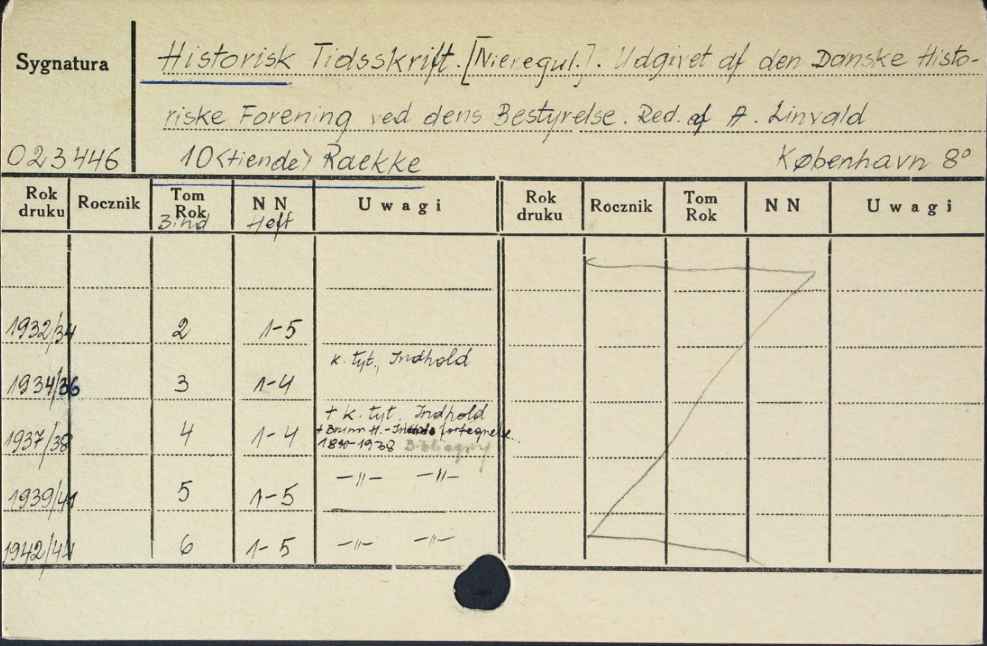 Sygnatura
Historisk Tidsskrift. [Nieregul.]. Udgivet af den Danske Histo-
riske Forening ved dens Bestyrelse. Red. af A. Linvald
023446 10<tiende> Raekke København 8°
Rok druku Rocznik Tom Rok NN Uwagi Rok druku Rocznik Tom Rok NN Uwagi
Bind Heft
1932/34 2 1-5
k. tyt., Indhold
1934/36 3 1-4
+ k. tyt. Indhold
1937/38 4 1-4 + Bruun H.-
1840-1938 Bibliogr
1939/41 5 1-5 -"- -"-
1942/44 6 1-5 -"- -"-